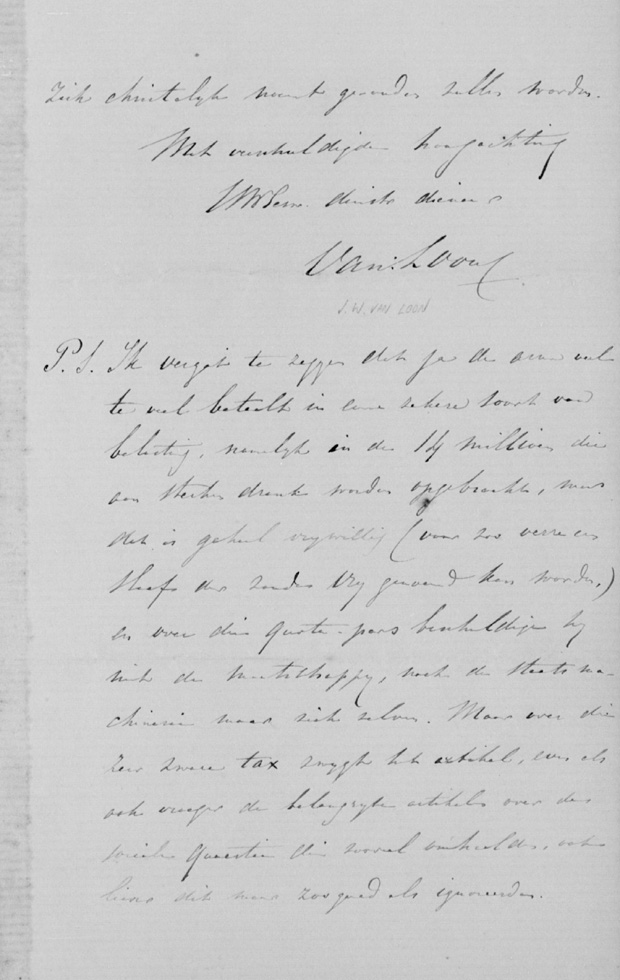 zich christelijk noemt gevonden zullen worden.
Met verschuldigde hoogachting
UWEw. dienstv. dienaar
Van Loon
J. W. VAN LOON
P. S. Ik vergat te zeggen dat ja de arme veel
te veel betaalt in eene zekere soort van
belasting, namelijk in de 14 millioen die
aan sterken drank worden opgebracht, maar
dat is geheel vrywillig (voor zoo verre een
slaaf der zonde vry genoemd kan worden,)
en over die quote-part beschuldige hy
niet de maatschappy, noch de staatsma-
chinerie maar zich zelven. Maar over die
zeer zware tax zwygt het artikel, even als
ook vroeger de belangryke artikels over de
sociale quaestie die zooveel inhielden, ook
dit maar zoo goed als ignoreerden.